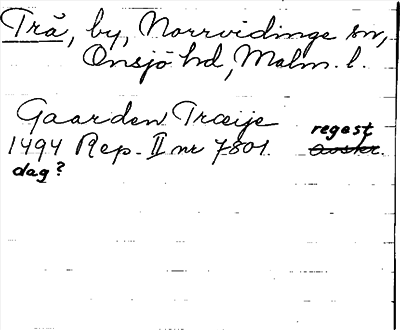 Trå, by, Norrvidinge sn,
Onsjö hd, Malm. l.
Gaarden Træije
regest
1494 Rep. II nr 7801. Avskr.
dag?